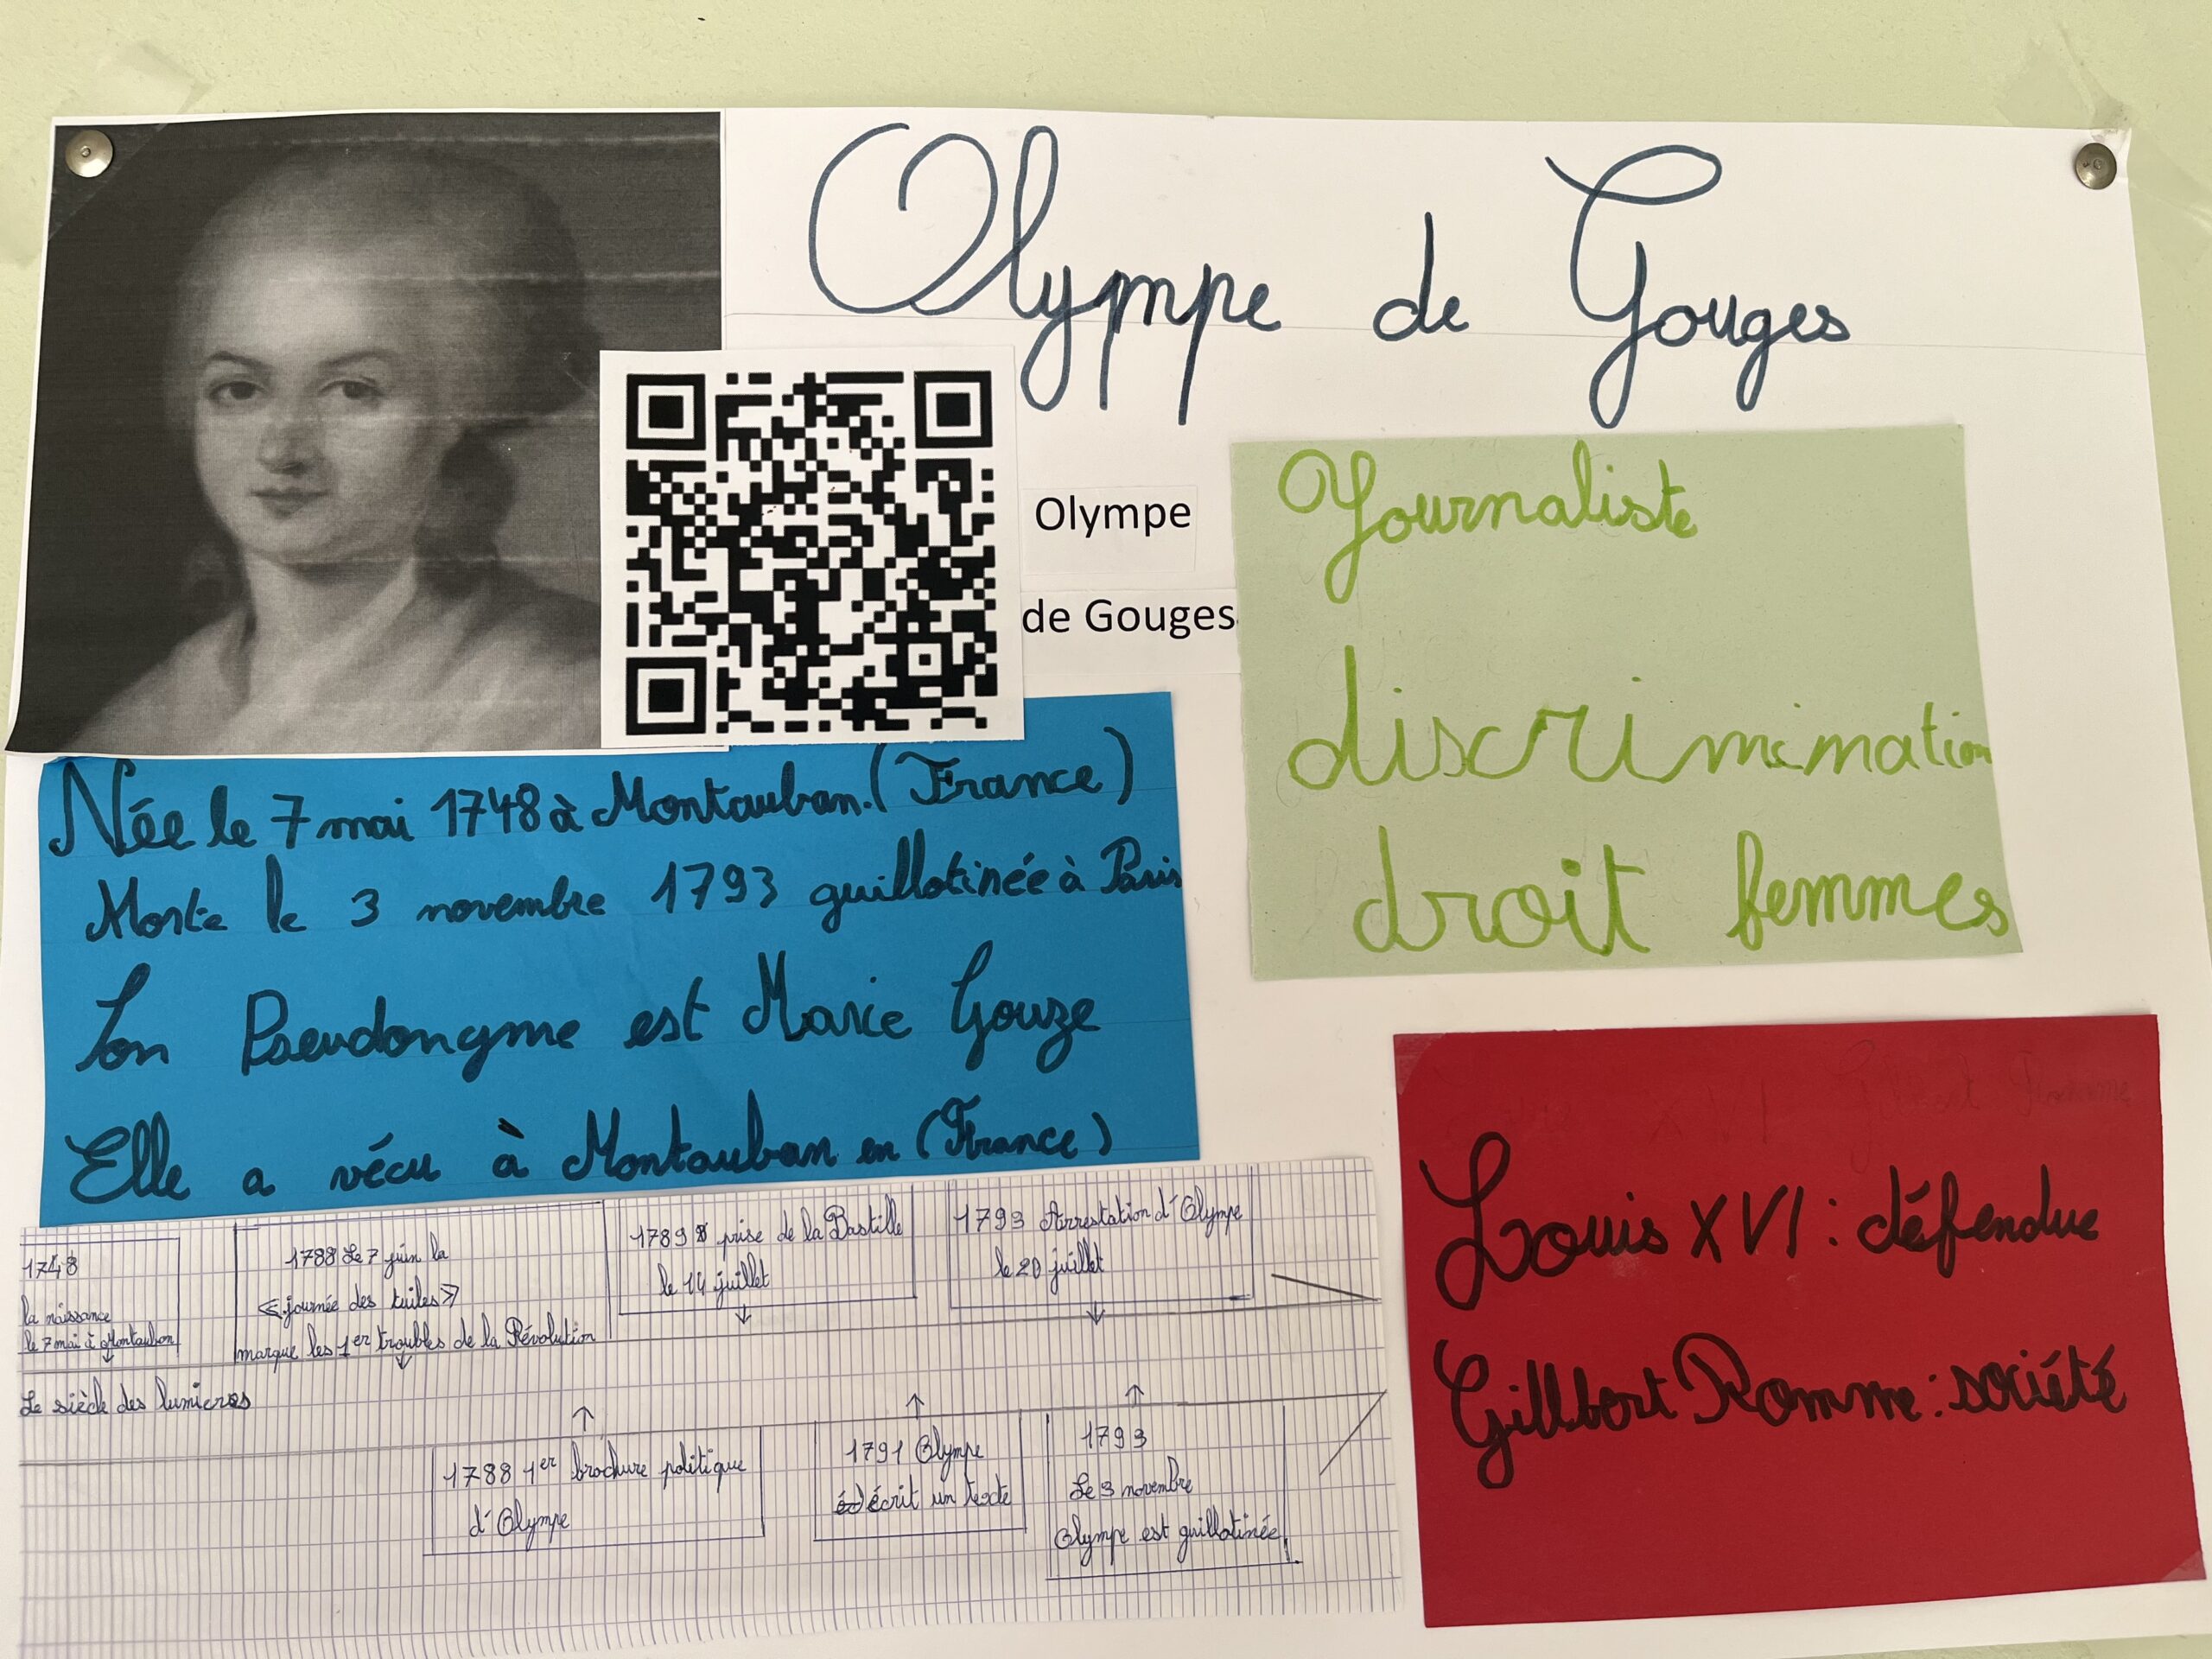 Olympe de Gouges
Olympe
de Gouges
Journaliste
discrimination
droit femmes
Née le 7 mai 1748 à Montauban.(France)
Morte le 3 novembre 1793 guillotinée à Paris
Son Pseudonyme est Marie Gouze
Elle a vécu à Montauban en (France)
Louis XVI : défendue
Gillbert Romme : société
1748
la naissance
le 7 mai à Montauban
1788 Le 7 juin la
<<journée des tuiles>>
marque les 1er troubles de la Révolution
1789 prise de la Bastille
le 14 juillet
1793 Arrestation d'Olympe
le 20 juillet
Le siècle des lumieres
1788 1er brochure politique
d'Olympe
1791 Olympe
écrit un texte
1793
Le 3 novembre
Olympe est guillotinée.